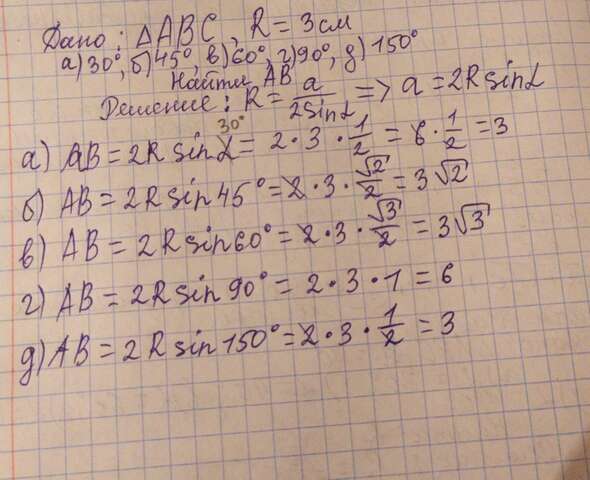 Дано: △ABC, R = 3 см
а) 30°, б) 45°, в) 60°, г) 90°, д) 150°
Найти AB
Решение: R = a/2sinα => a = 2R sinα
а) AB = 2R sinα 30° = 2 · 3 · 1/2 = 6 · 1/2 = 3
б) AB = 2R sin 45° = 2 · 3 · √2/2 = 3√2
в) AB = 2R sin 60° = 2 · 3 · √3/2 = 3√3
г) AB = 2R sin 90° = 2 · 3 · 1 = 6
д) AB = 2R sin 150° = 2 · 3 · 1/2 = 3